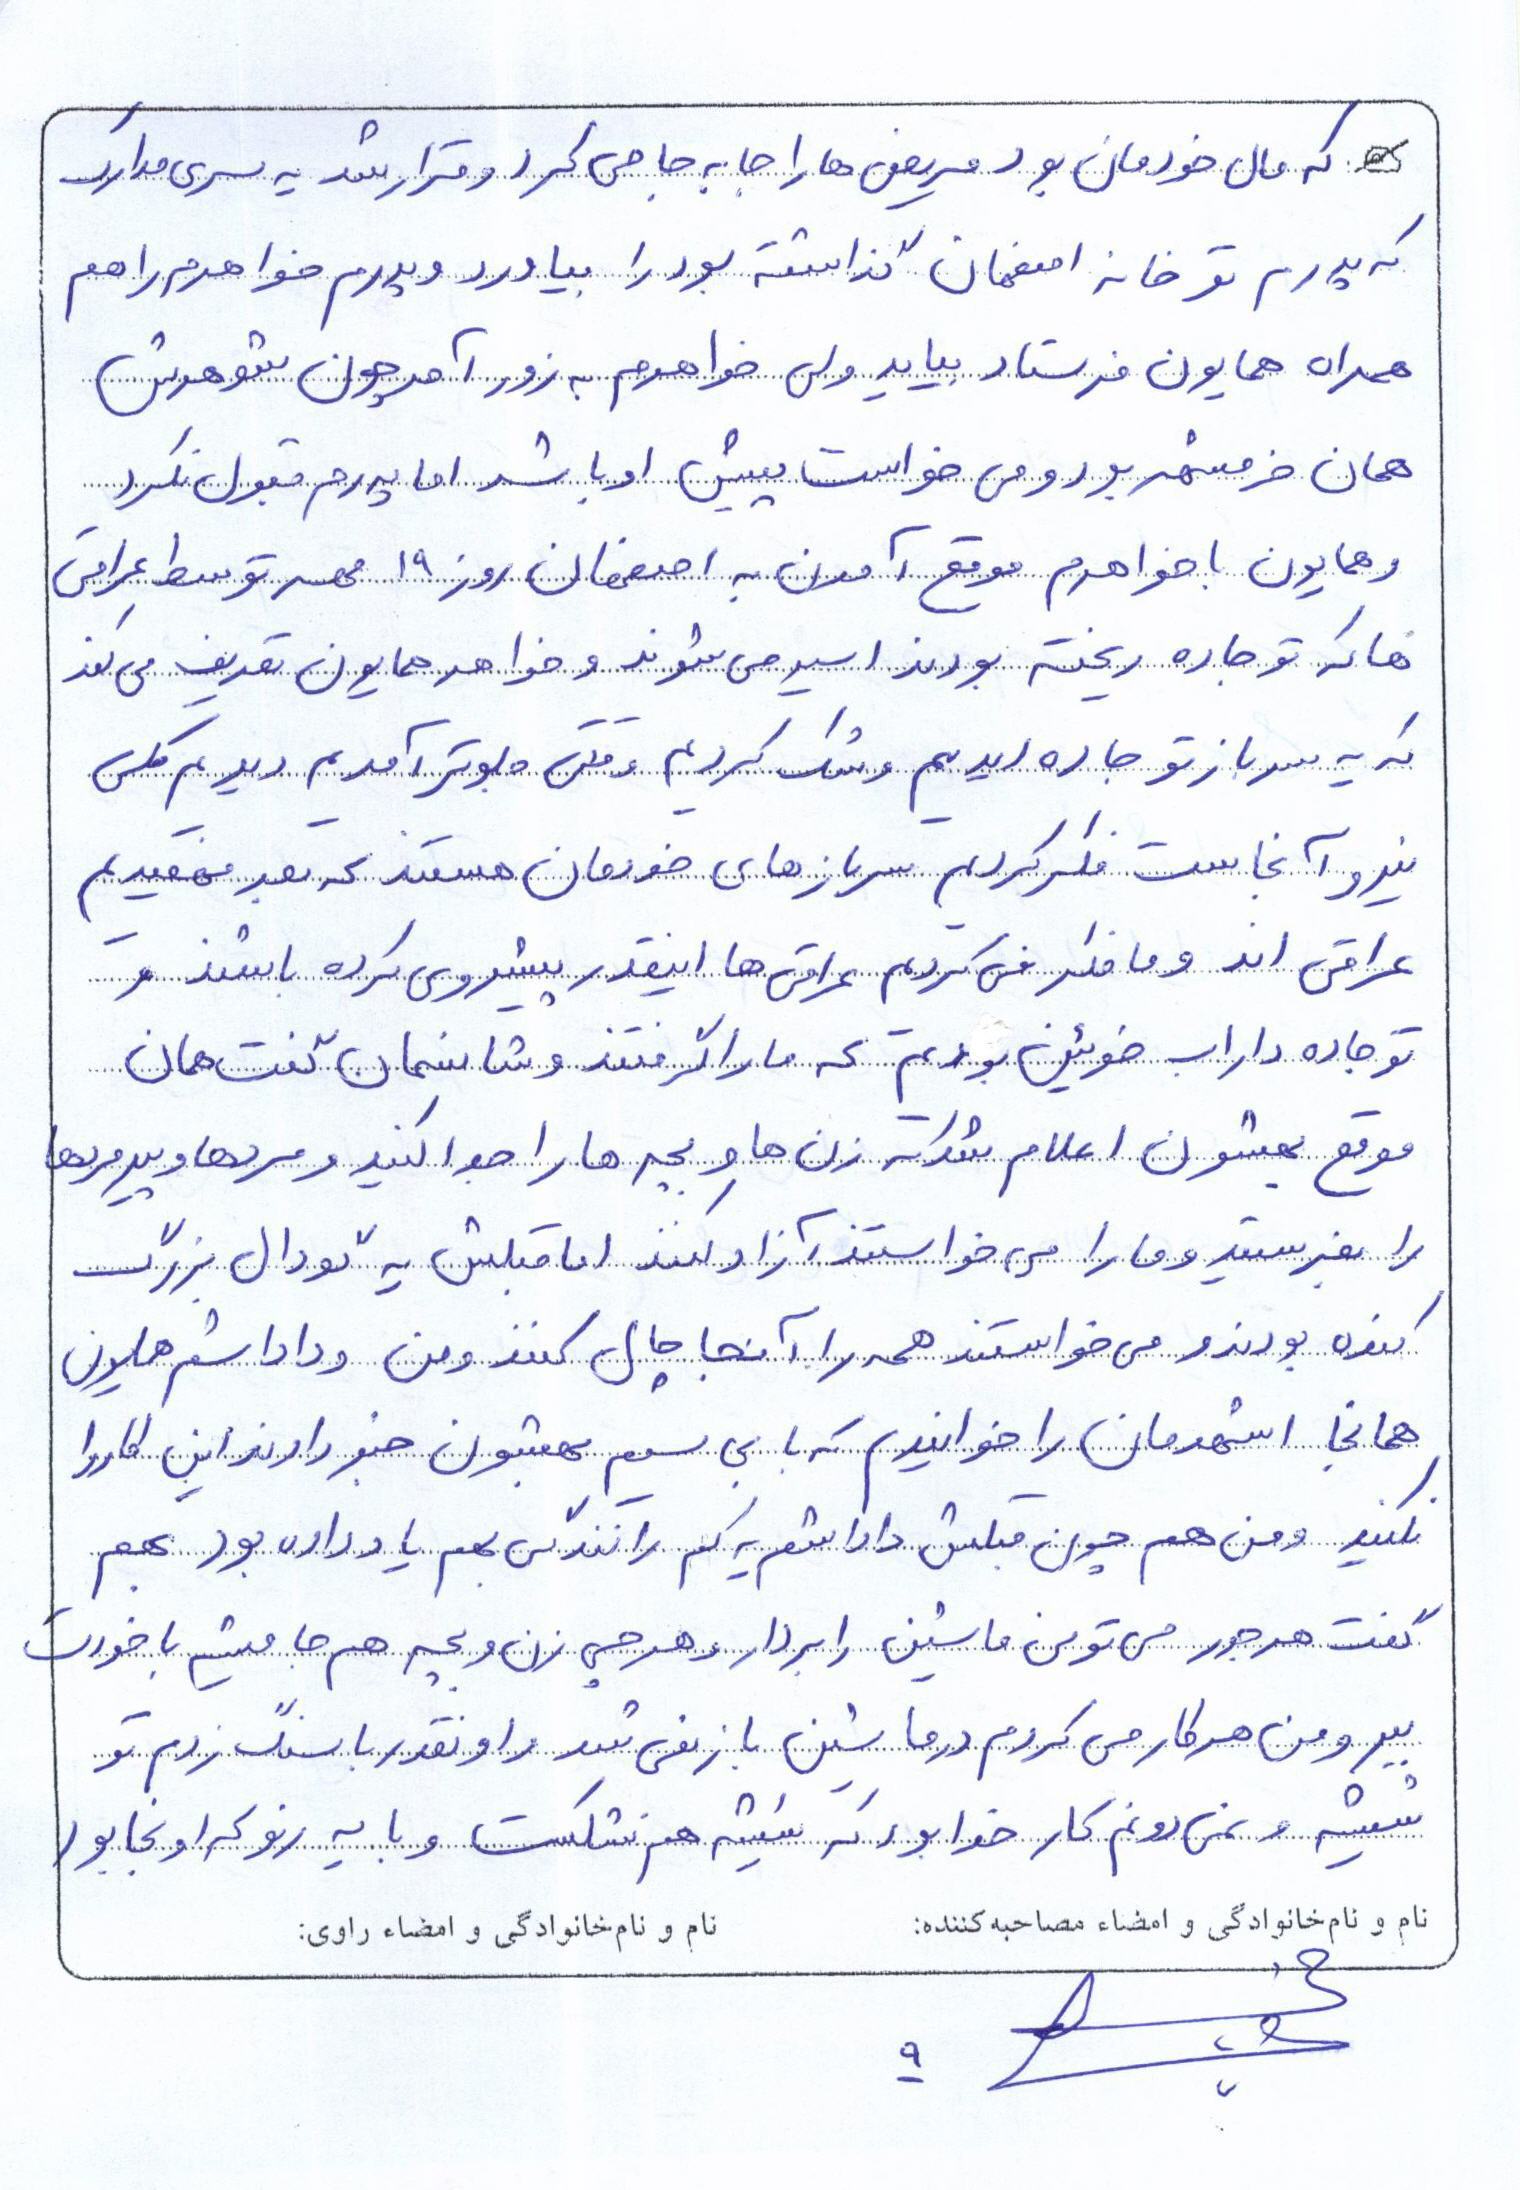 که مال خودمان بود مریض ها را جا به جا می کرد و قرار شد یه سری مدارک
که پدرم تو خانه اصفهان گذاشته بود را بیاورد و پدرم خواهرم را هم
همراه همایون فرستاد بیاید ولی خواهرم به زور آمد چون شوهرش
همان خرمشهر بود و می خواست پیش او باشد اما پدرم قبول نکرد
و همایون با خواهرم موقع آمدن به اصفهان روز ۱۹ مهر توسط عراقی
ها که تو جاده ریخته بودند اسیر می شوند و خواهر همایون تعریف می کند
که یه سرباز تو جاده دیدیم و شک کردیم وقتی جلوتر آمدیم دیدیم کلی
نیرو آنجاست فکر کردیم سربازهای خودمان هستند که بعد فهمیدیم
عراقی اند و ما فکر نمی کردیم عراقی ها اینقدر پیشروی کرده باشند و
تو جاده داراب خوئین بودیم که ما را گرفتند و شانسمان گفت همان
موقع بهشون اعلام شد که زن ها و بچه ها را جدا کنید و مردها و پیرمردها
را بفرستید و ما را می خواستند آزاد کنند اما قبلش یه گودال بزرگ
کنده بودند و می خواستند همه را آنجا چال کنند و من و داداشم همایون
همانجا اشهدمان را خواندیم که با بی سیم بهشون خبر دادند این کار را
نکنید و من هم چون قبلش داداشم یه کم رانندگی بهم یاد داده بود بهم
گفت هر جور می تونی ماشین را بردار و هر چی زن و بچه هم جا میشه با خودت
ببر و من هر کار می کردم در ماشین باز نمی شد و اونقدر با سنگ زدم تو
شیشه و نمی دونم کار خدا بود که شیشه هم نشکست و با یه رنو که اونجا بود
نام و نام‌خانوادگی و امضاء مصاحبه‌کننده: نام و نام‌خانوادگی و امضاء راوی:
۹